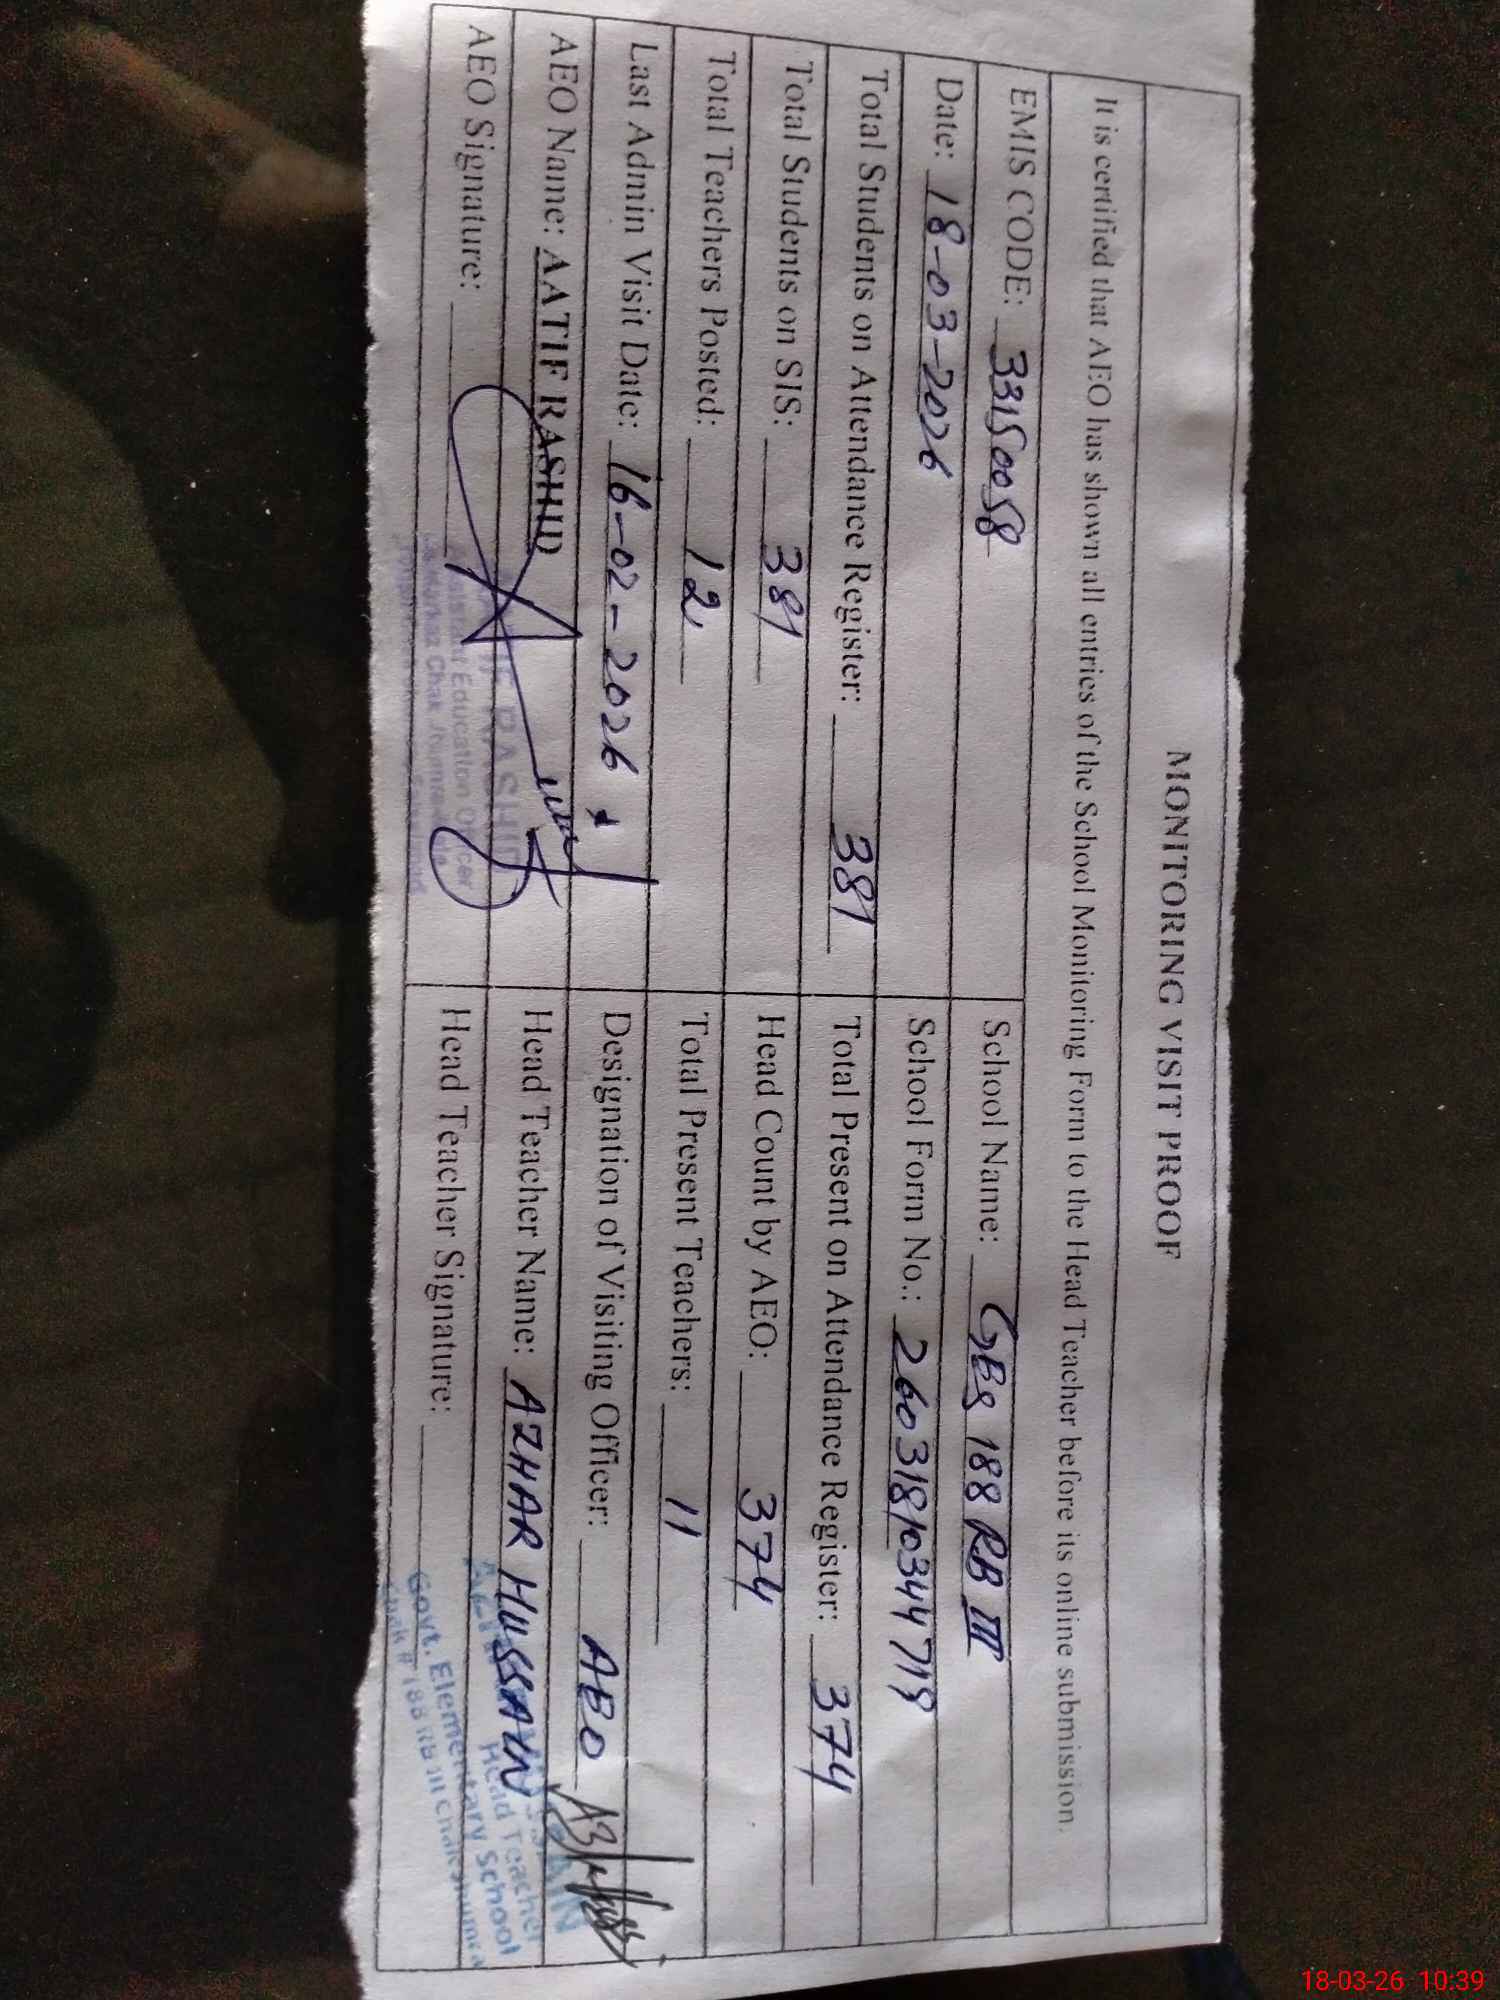 MONITORING VISIT PROOF
It is certified that AEO has shown all entries of the School Monitoring Form to the Head Teacher before its online submission.
EMIS CODE: 33150058 School Name: GES 188 RB III
Date: 18-03-2026 School Form No.: 26031810344719
Total Students on Attendance Register: 381 Total Present on Attendance Register: 374
Total Students on SIS: 381 Head Count by AEO: 374
Total Teachers Posted: 12 Total Present Teachers: 11
Last Admin Visit Date: 16-02-2026 Designation of Visiting Officer: AEO
AEO Name: AATIF RASHID Head Teacher Name: AZHAR HUSSAIN
AEO Signature: Head Teacher Signature:
RASHID
Education Officer
Markaz Chak Jhumra
Head Teacher
Govt. Elementary School
Chak # 188 RB III Chak Jhumra
18-03-26 10:39